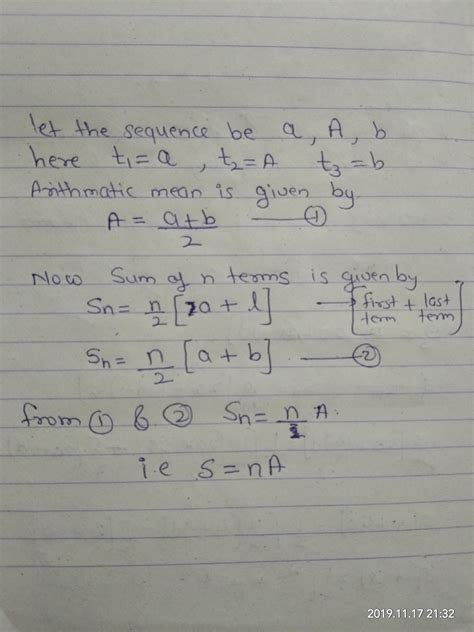 let the sequence be a, A, b
here t₁=a , t₂=A t₃=b
Arithmatic mean is given by
A = a+b/2 —— ①
Now Sum of n terms is given by
Sn= n/2 [a + l] → [first term + last term]
Sn= n/2 [a + b] —— ②
from ① & ② Sn= n/1 A.
i.e S=nA
2019.11.17 21:32